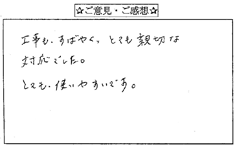 ☆ご意見・ご感想☆
工事も、すばやく、とても親切な
対応でした。
とても、使いやすいです。